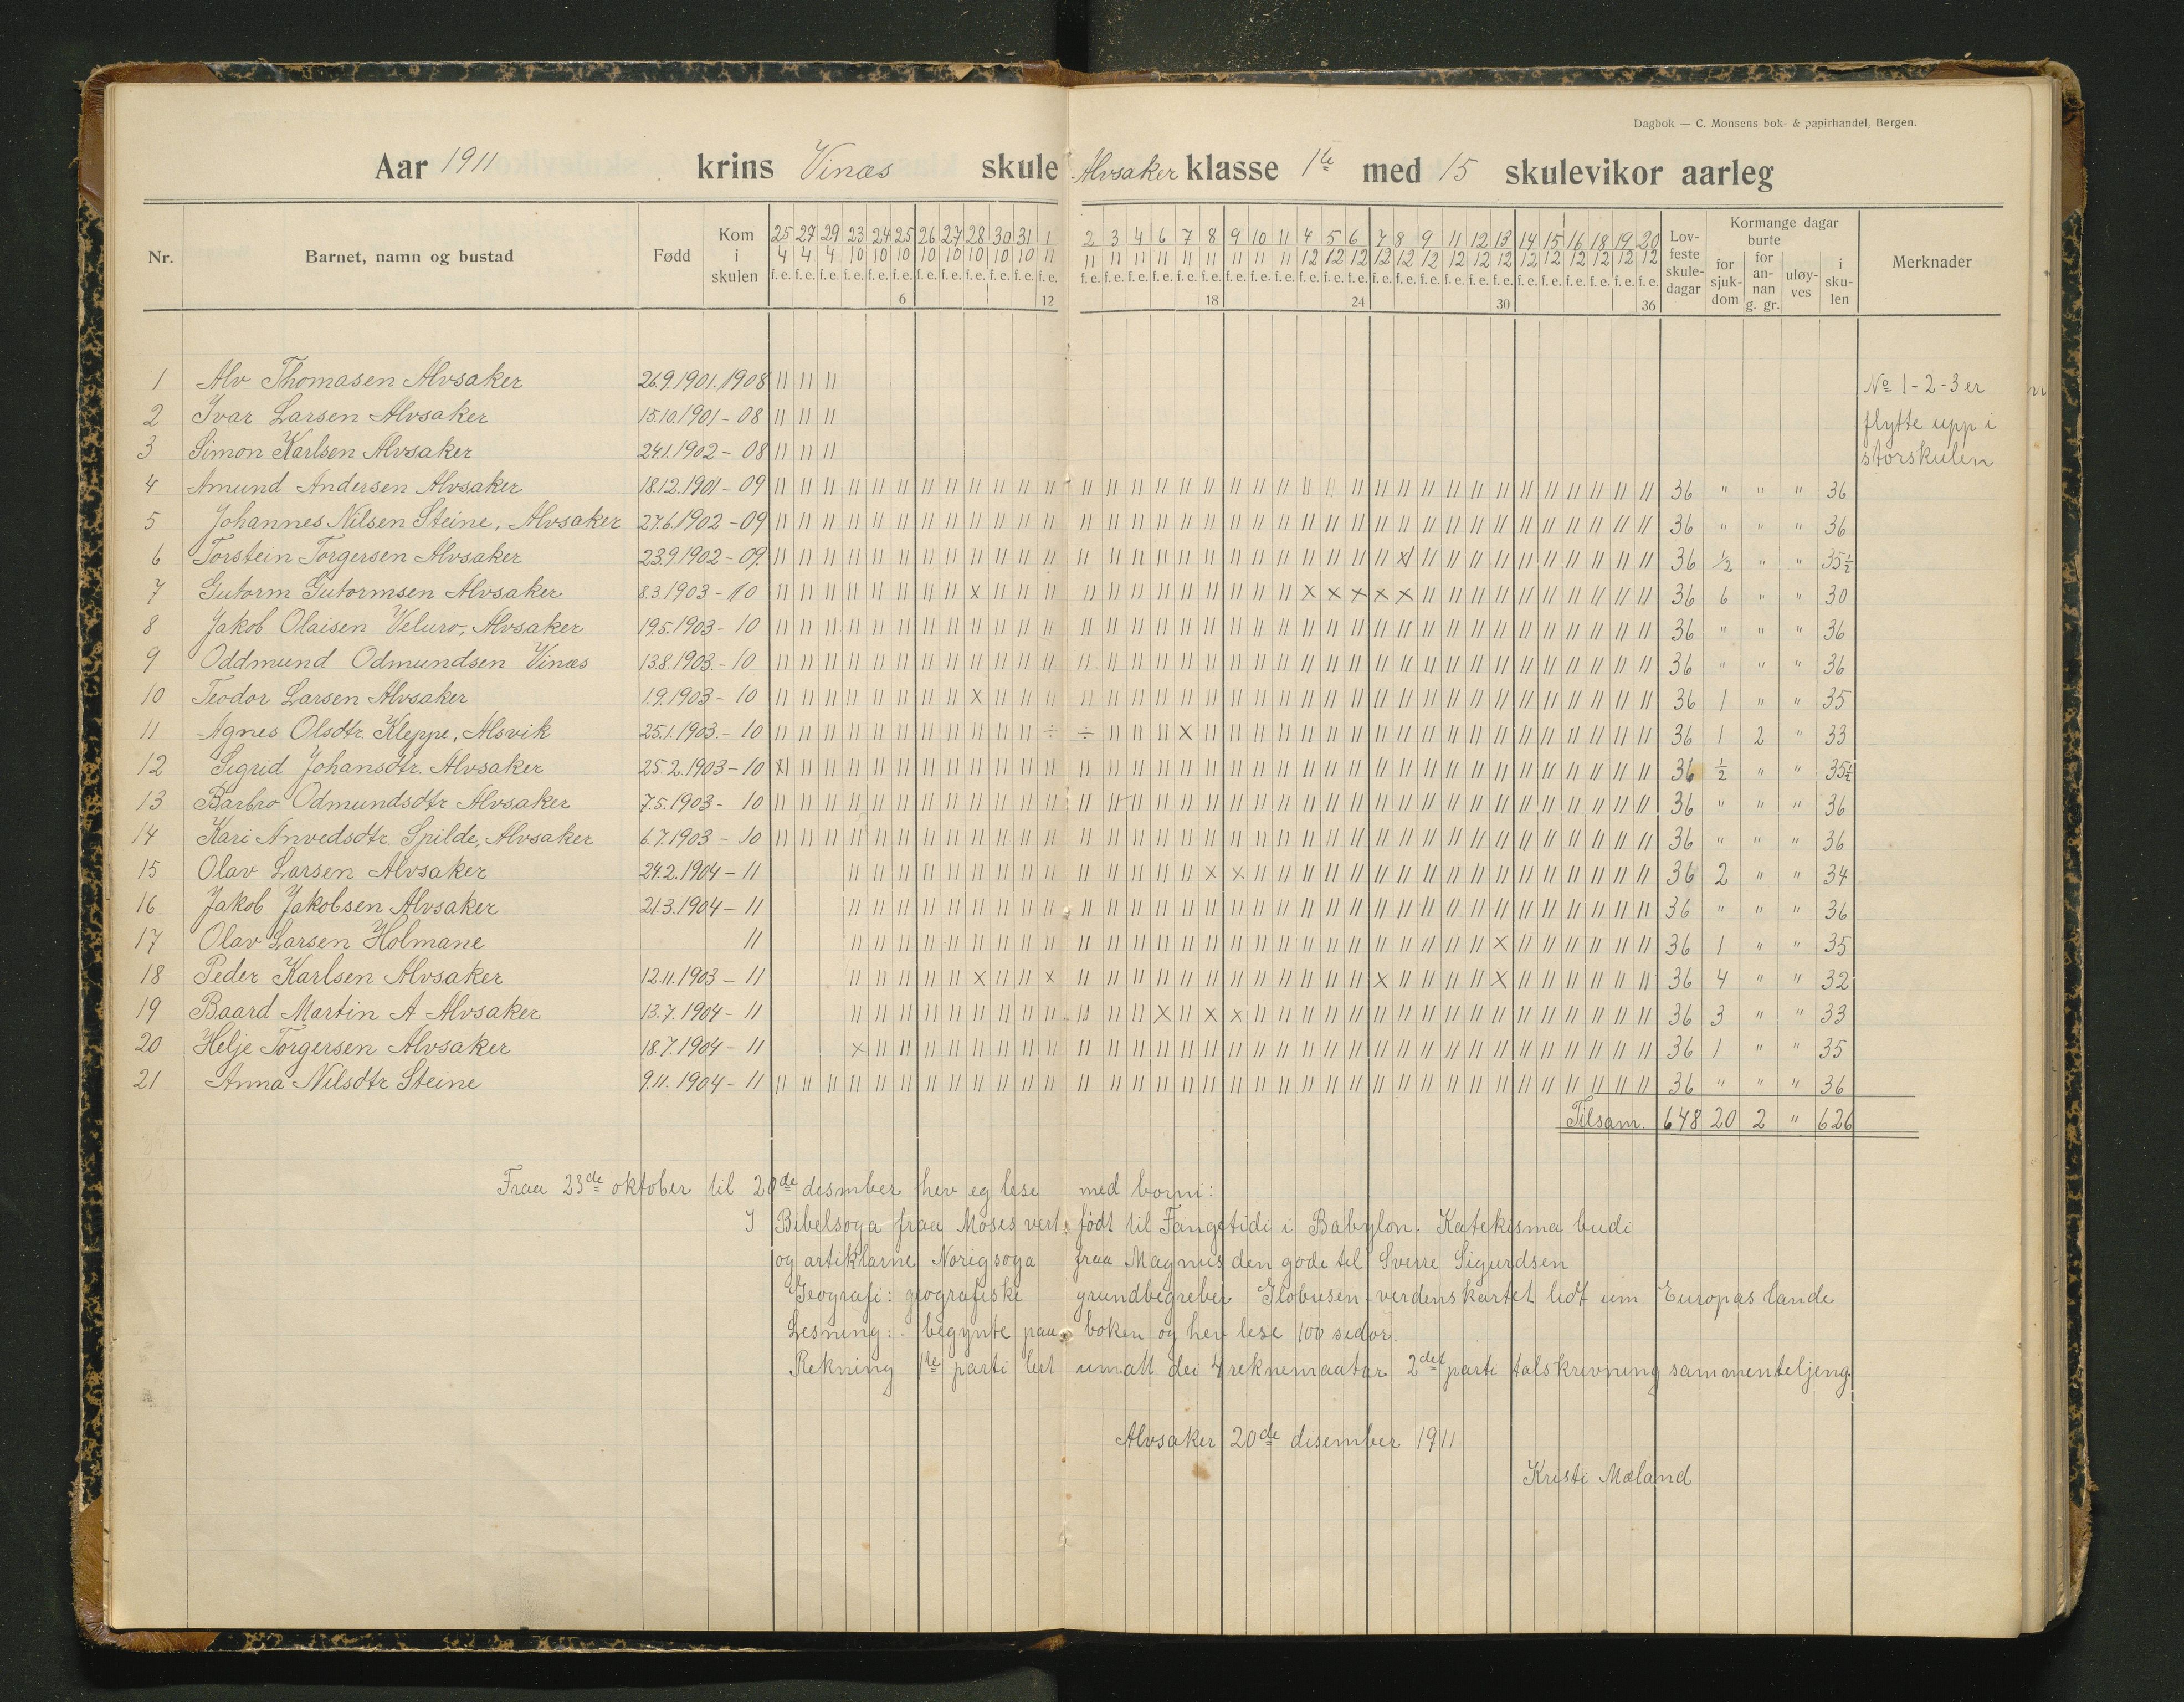 Dagbok — C. Monsens bok- & papirhandel, Bergen.
Aar 1911 krins Vinæs skule Alvsaker klasse 1te med 15 skulevikor aarleg
Nr. Barnet, namn og bustad Fødd Kom i skulen 25/4 27/4 29/4 23/10 24/10 25/10 26/10 27/10 28/10 30/10 31/10 1/11 2/11 3/11 4/11 6/11 7/11 8/11 9/11 10/11 11/11 4/12 5/12 6/12 7/12 8/12 9/12 11/12 12/12 13/12 14/12 15/12 16/12 18/12 19/12 20/12 Lovfeste skuledagar Kormange dagar burte for sjukdom for annan g. gr. uløyves i skulen Merknader
f. e. f. e. f. e. f. e. f. e. f. e. f. e. f. e. f. e. f. e. f. e. f. e. f. e. f. e. f. e. f. e. f. e. f. e. f. e. f. e. f. e. f. e. f. e. f. e. f. e. f. e. f. e. f. e. f. e. f. e. f. e. f. e. f. e. f. e. f. e. f. e.
6 12 18 24 30 36
1 Alv Thomasen Alvsaker 26.9.1901. 1908 || || || No 1-2-3 er
2 Ivar Larsen Alvsaker 15.10.1901 - 08 || || || flytte upp i
3 Simon Karlsen Alvsaker 24.1.1902 - 08 || || || storskulen
4 Amund Andersen Alvsaker 18.12.1901 - 09 || || || || || || || || || || || || || || || || || || || || || || || || || || || || || || || || || || || || 36 " " " 36
5 Johannes Nilsen Steine, Alvsaker 27.6.1902 - 09 || || || || || || || || || || || || || || || || || || || || || || || || || || || || || || || || || || || || 36 " " " 36
6 Torstein Torgersen Alvsaker 23.9.1902 - 09. || || || || || || || || || || || || || || || || || || || || || || || || || x| || || || || || || || || || || 36 ½ " " 35½
7 Gutorm Gutormsen Alvsaker 8.3.1903 - 10 || || || || || || || || x || || || || || || || || || || || || x x x x x || || || || || || || || || || 36 6 " " 30
8 Jakob Olaisen Veluro, Alvsaker 19.5.1903 - 10 || || || || || || || || || || || || || || || || || || || || || || || || || || || || || || || || || || || || 36 " " " 36
9 Oddmund Odmundsen Vinæs 13.8.1903. - 10 || || || || || || || || || || || || || || || || || || || || || || || || || || || || || || || || || || || || 36 " " " 36
10 Teodor Larsen Alvsaker 1.9.1903 - 10 || || || || || || || || x || || || || || || || || || || || || || || || || || || || || || || || || || || || 36 1 " " 35
11 Agnes Olsdtr. Kleppe, Alsvik 25.1.1903. - 10 || || || || || || || || || || || ÷ ÷ || || || x || || || || || || || || || || || || || || || || || || || 36 1 2 " 33
12 Sigrid Johansdtr. Alvsaker 25.2.1903 - 10 x| || || || || || || || || || || || || || || || || || || || || || || || || || || || || || || || || || || || 36 ½ " " 35½
13 Barbro Odmundsdtr Alvsaker 7.5.1903 - 10 || || || || || || || || || || || || || || || || || || || || || || || || || || || || || || || || || || || || 36 " " " 36
14 Kari Anvedsdtr. Spilde, Alvsaker 6.7.1903 - 10 || || || || || || || || || || || || || || || || || || || || || || || || || || || || || || || || || || || || 36 " " " 36
15 Olav Larsen Alvsaker 24.2.1904 - 11 || || || || || || || || || || || || || || x x || || || || || || || || || || || || || || || || || 36 2 " " 34
16 Jakob Jakobsen Alvsaker 21.3.1904 - 11 || || || || || || || || || || || || || || || || || || || || || || || || || || || || || || || || || 36 " " " 36
17 Olav Larsen Holmane 11 || || || || || || || || || || || || || || || || || || || || || || || || || || x || || || || || || 36 1 " " 35
18 Peder Karlsen Alvsaker 12.11.1903 - 11 || || || || || x || || x || || || || || || || || || || || || x || || || || x || || || || || || 36 4 " " 32
19 Baard Martin A Alvsaker 13.7.1904 - 11 || || || || || || || || || || || || x || x x || || || || || || || || || || || || || || || || || 36 3 " " 33
20 Helje Torgersen Alvsaker 18.7.1904 - 11 x || || || || || || || || || || || || || || || || || || || || || || || || || || || || || || || || 36 1 " " 35
21 Anna Nilsdtr Steine 9.11.1904 - 11 || || || || || || || || || || || || || || || || || || || || || || || || || || || || || || || || || || || || 36 " " " 36
Tilsam. 648 20 2 " 626
Fraa 23de oktober til 20de desmber hev eg lese med borni:
I Bibelsoga fraa Moses vert født til Fangetidi i Babylon. Katekisma budi
og artiklarne Norigsoga fraa Magnus den gode til Sverre Sigurdsen
Geografi: geografiske grundbegreber Globusen verdenskartet lidt um Europas lande
Lesning:- begynte paa boken og hev lese 100 sidor.
Rekning 1te parti lert umatt dei 4 reknemaatar 2det parti talskrivning sammenteljeng
Alvsaker 20de disember 1911
Kristi Mæland